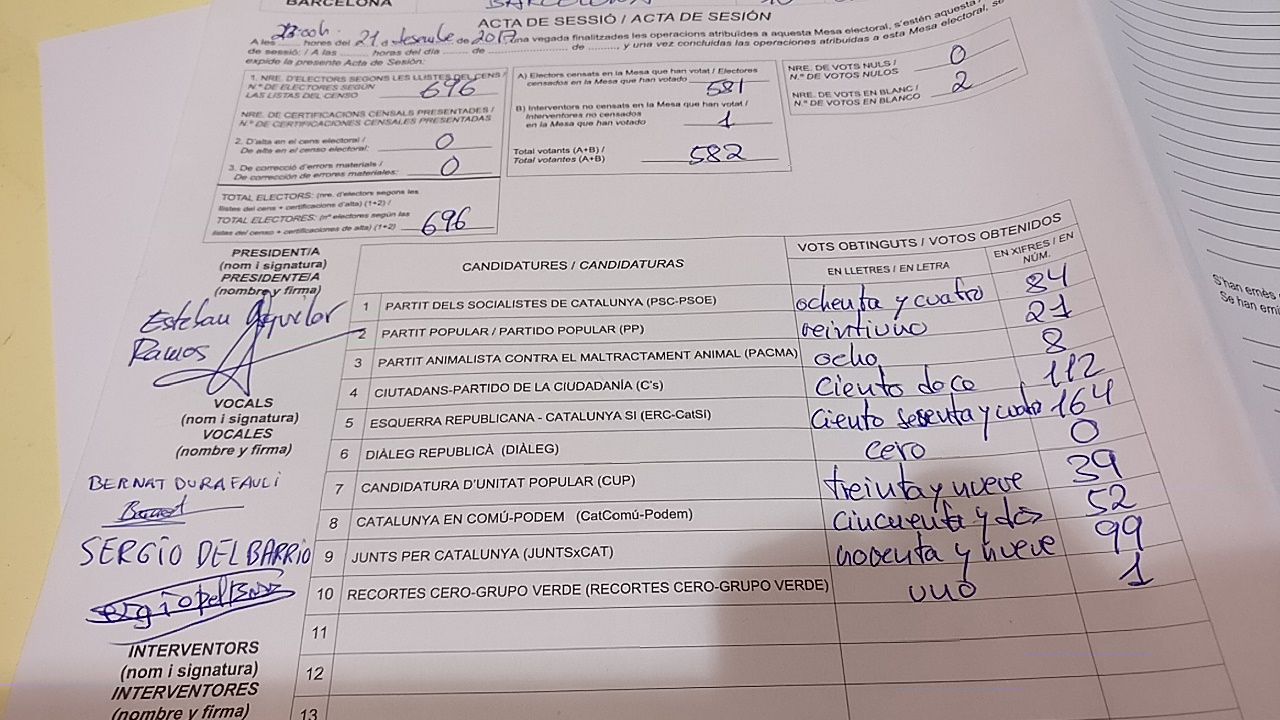 BARCELONA
ACTA DE SESSIÓ / ACTA DE SESIÓN
A les 23:00h. hores del 21 d desembre de 2017, una vegada finalitzades les operacions atribuïdes a aquesta Mesa electoral, s'estén aquesta
de sessió: / A las ........ horas del día ........ de ........ de ........, y una vez concluidas las operaciones atribuidas a esta Mesa electoral, se
expide la presente Acta de Sesión:
1. NRE. D'ELECTORS SEGONS LES LLISTES DEL CENS /
N.º DE ELECTORES SEGÚN
LAS LISTAS DEL CENSO 696
NRE. DE CERTIFICACIONS CENSALS PRESENTADES /
N.º DE CERTIFICACIONES CENSALES PRESENTADAS
2. D'alta en el cens electoral /
De alta en el censo electoral: 0
3. De correcció d'errors materials /
De corrección de errores materiales: 0
TOTAL ELECTORS: (nre. d'electors segons les
llistes del cens + certificacions d'alta) (1+2) /
TOTAL ELECTORES: (nº electores según las
listas del censo + certificaciones de alta) (1+2) 696
A) Electors censats en la Mesa que han votat / Electores
censados en la Mesa que han votado 581
B) Interventors no censats en la Mesa que han votat /
Interventores no censados
en la Mesa que han votado 1
Total votants (A+B) /
Total votantes (A+B) 582
NRE. DE VOTS NULS /
N.º DE VOTOS NULOS 0
NRE. DE VOTS EN BLANC /
N.º DE VOTOS EN BLANCO 2
PRESIDENT/A
(nom i signatura)
PRESIDENTE/A
(nombre y firma)
Esteban Aguilar
Ramos
VOCALS
(nom i signatura)
VOCALES
(nombre y firma)
BERNAT DURA FAULI
Bernat
SERGIO DEL BARRIO
INTERVENTORS
(nom i signatura)
INTERVENTORES
(nombre y firma)
CANDIDATURES / CANDIDATURAS
VOTS OBTINGUTS / VOTOS OBTENIDOS
EN LLETRES / EN LETRA
EN XIFRES / EN
NÚM.
1 PARTIT DELS SOCIALISTES DE CATALUNYA (PSC-PSOE) ochenta y cuatro 84
2 PARTIT POPULAR / PARTIDO POPULAR (PP) veintiuno 21
3 PARTIT ANIMALISTA CONTRA EL MALTRACTAMENT ANIMAL (PACMA) ocho 8
4 CIUTADANS-PARTIDO DE LA CIUDADANÍA (C's) ciento doce 112
5 ESQUERRA REPUBLICANA - CATALUNYA SI (ERC-CatSí) ciento sesenta y cuatro 164
6 DIÀLEG REPUBLICÀ (DIÀLEG) cero 0
7 CANDIDATURA D'UNITAT POPULAR (CUP) treinta y nueve 39
8 CATALUNYA EN COMÚ-PODEM (CatComú-Podem) cincuenta y dos 52
9 JUNTS PER CATALUNYA (JUNTSxCAT) noventa y nueve 99
10 RECORTES CERO-GRUPO VERDE (RECORTES CERO-GRUPO VERDE) uno 1
11
12
13
S'han emès
Se han emi